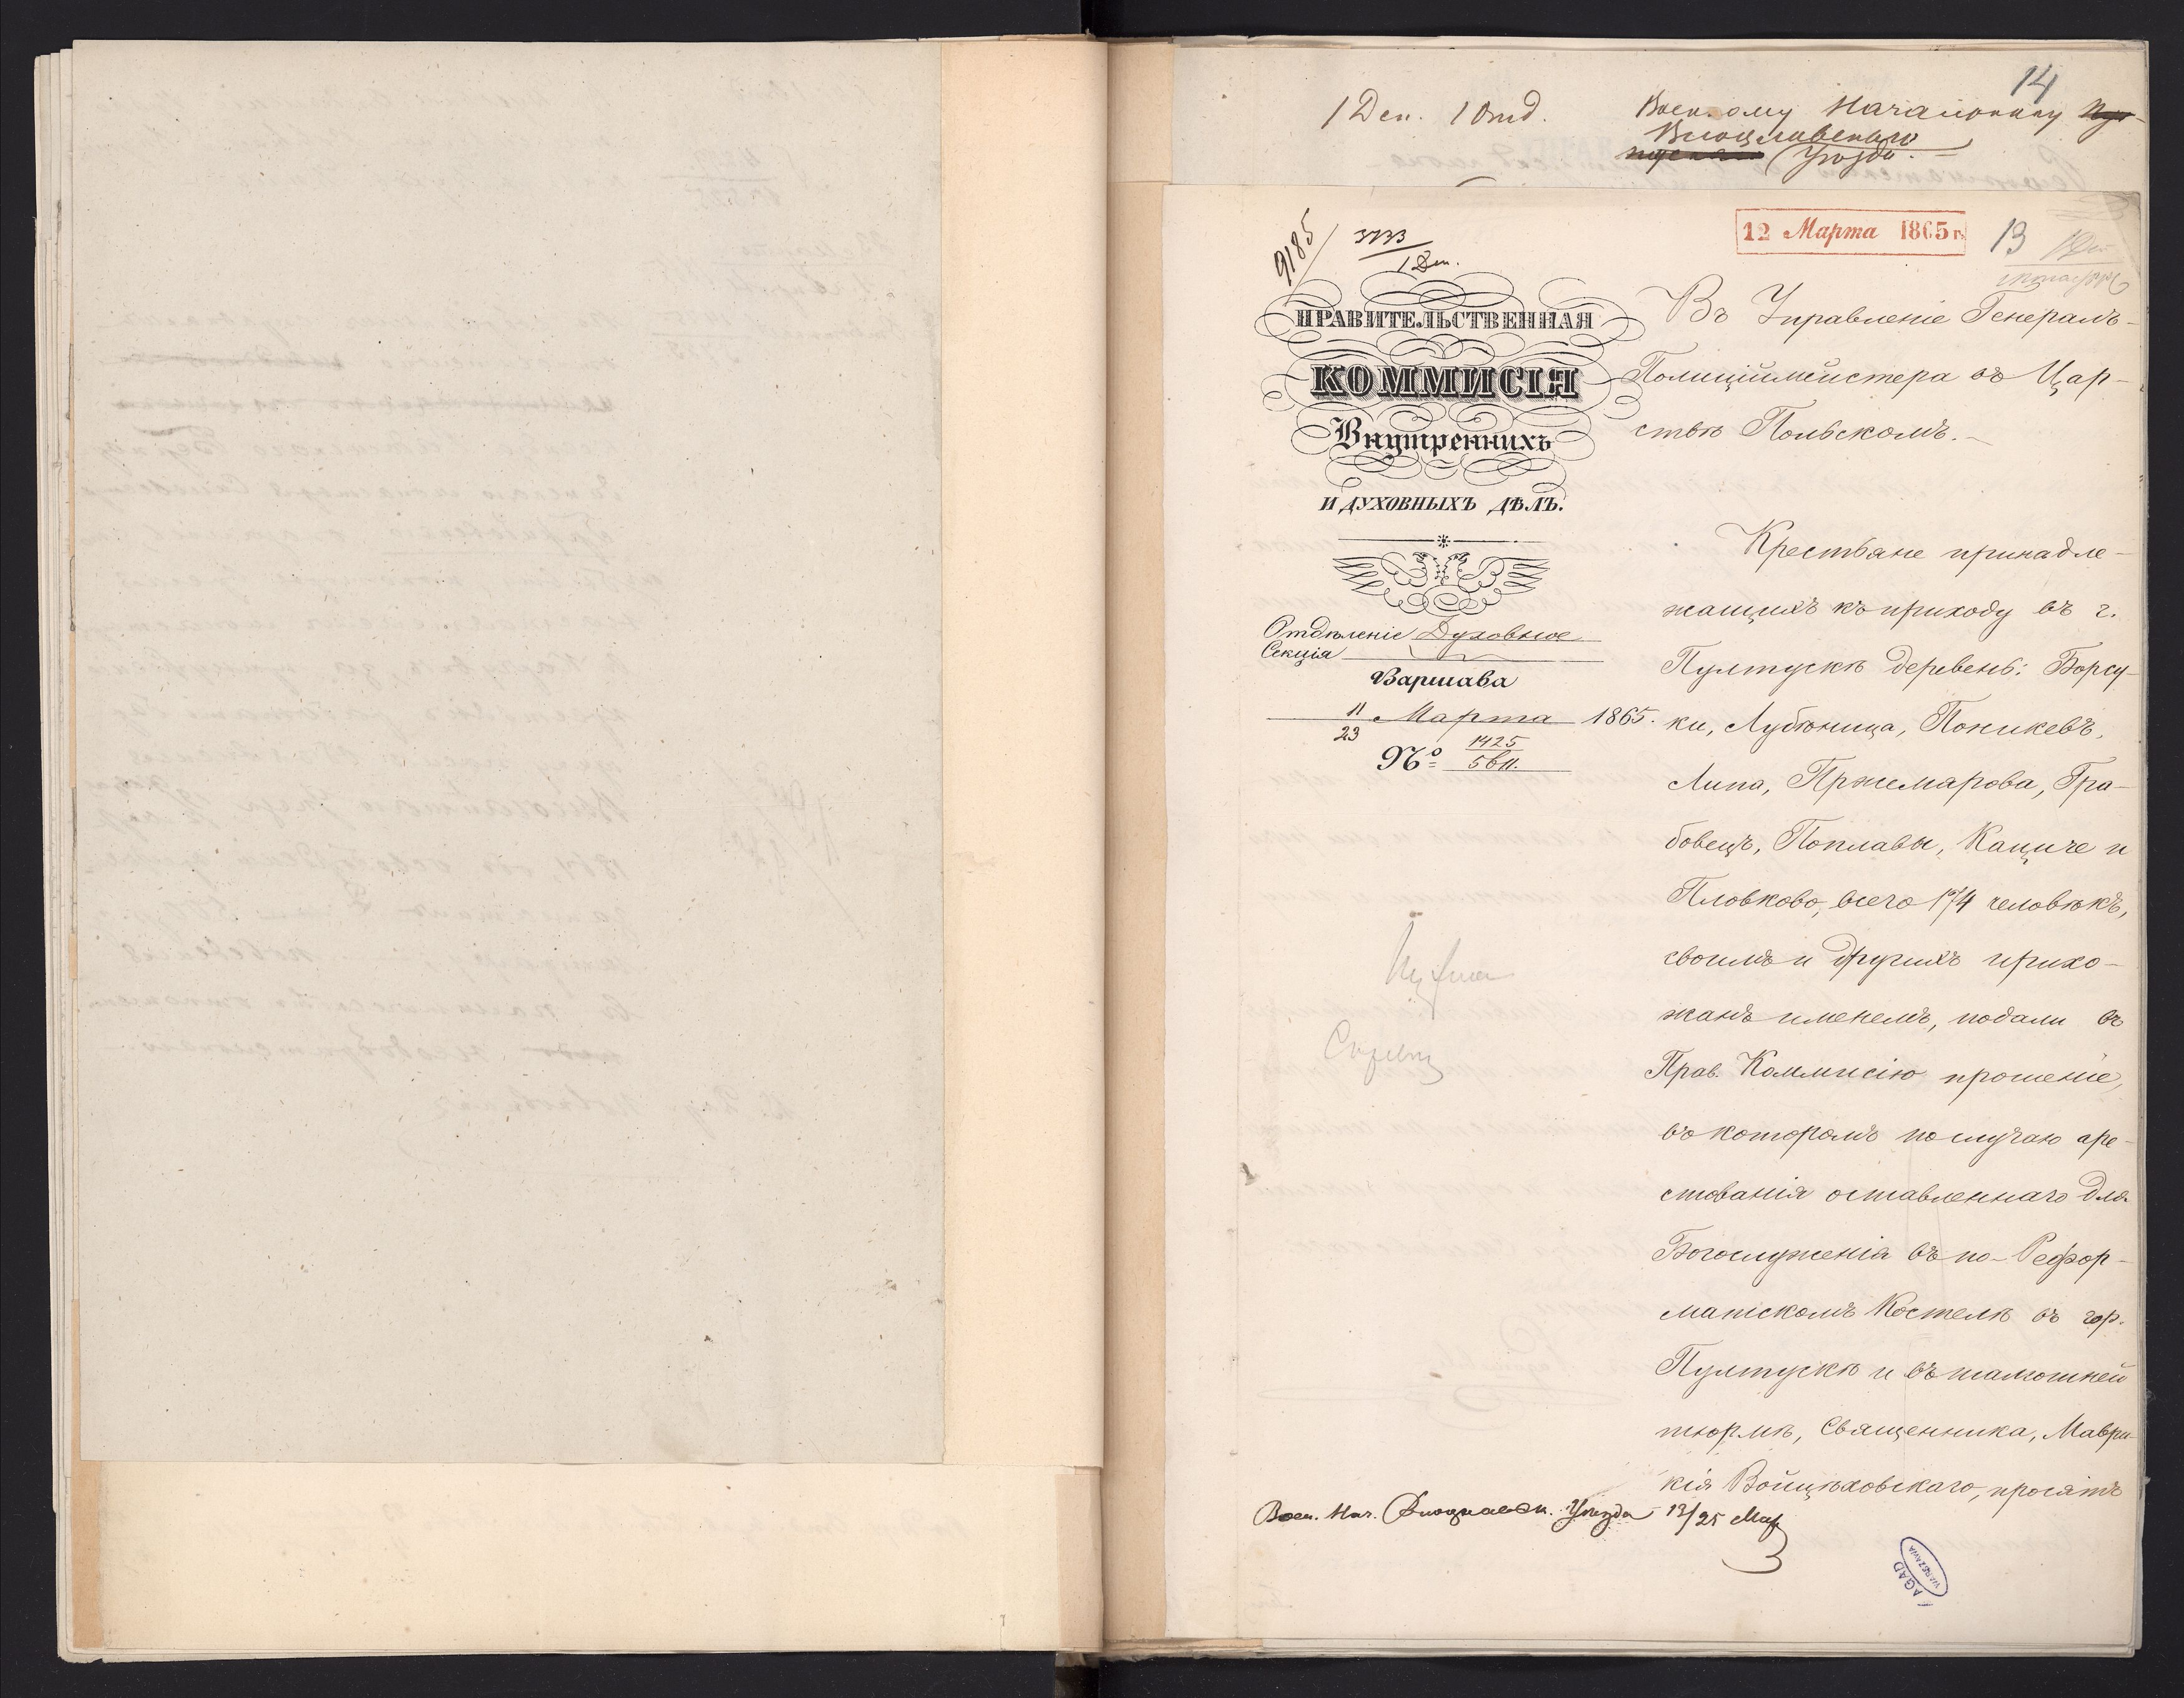 14
1 Деп. 1 Отд.
Военному Начальнику
Влоцлавскаго
Уѣзда.
12 Марта 1865 г.
13
9185
3733
1 Деп.
ПРАВИТЕЛЬСТВЕННАЯ
КОММИСІЯ
Внутреннихъ
И ДУХОВНЫХЪ ДѢЛЪ.
Отдѣленіе Духовное
Секція
Варшава
11/23 Марта 1865.
№ 1425/5611.
Въ Управленіе Генералъ-
Полиціймейстера въ Цар-
ствѣ Польскомъ.
Крестьяне принадле-
жащихъ къ приходу въ г.
Пултускѣ деревень: Борсу-
ки, Лубѣница, Поникевъ,
Липа, Пржемарова, Гра-
бовецъ, Поплавы, Кациче и
Пловково, всего 174 человѣкъ,
своимъ и другихъ прихо-
жанъ именемъ, подали въ
Прав. Коммисію прошеніе,
въ которомъ по случаю аре-
стованія оставленнаго для
Богослуженія въ по-Рефор-
матскомъ Костелѣ въ гор.
Пултускѣ и въ тамошней
тюрмѣ, Священника, Маври-
кія Войцѣховскаго, просятъ
Воен. Нач. Влоцлавск. Уѣзда 13/25 Мар
AGAD
WARSZAWA